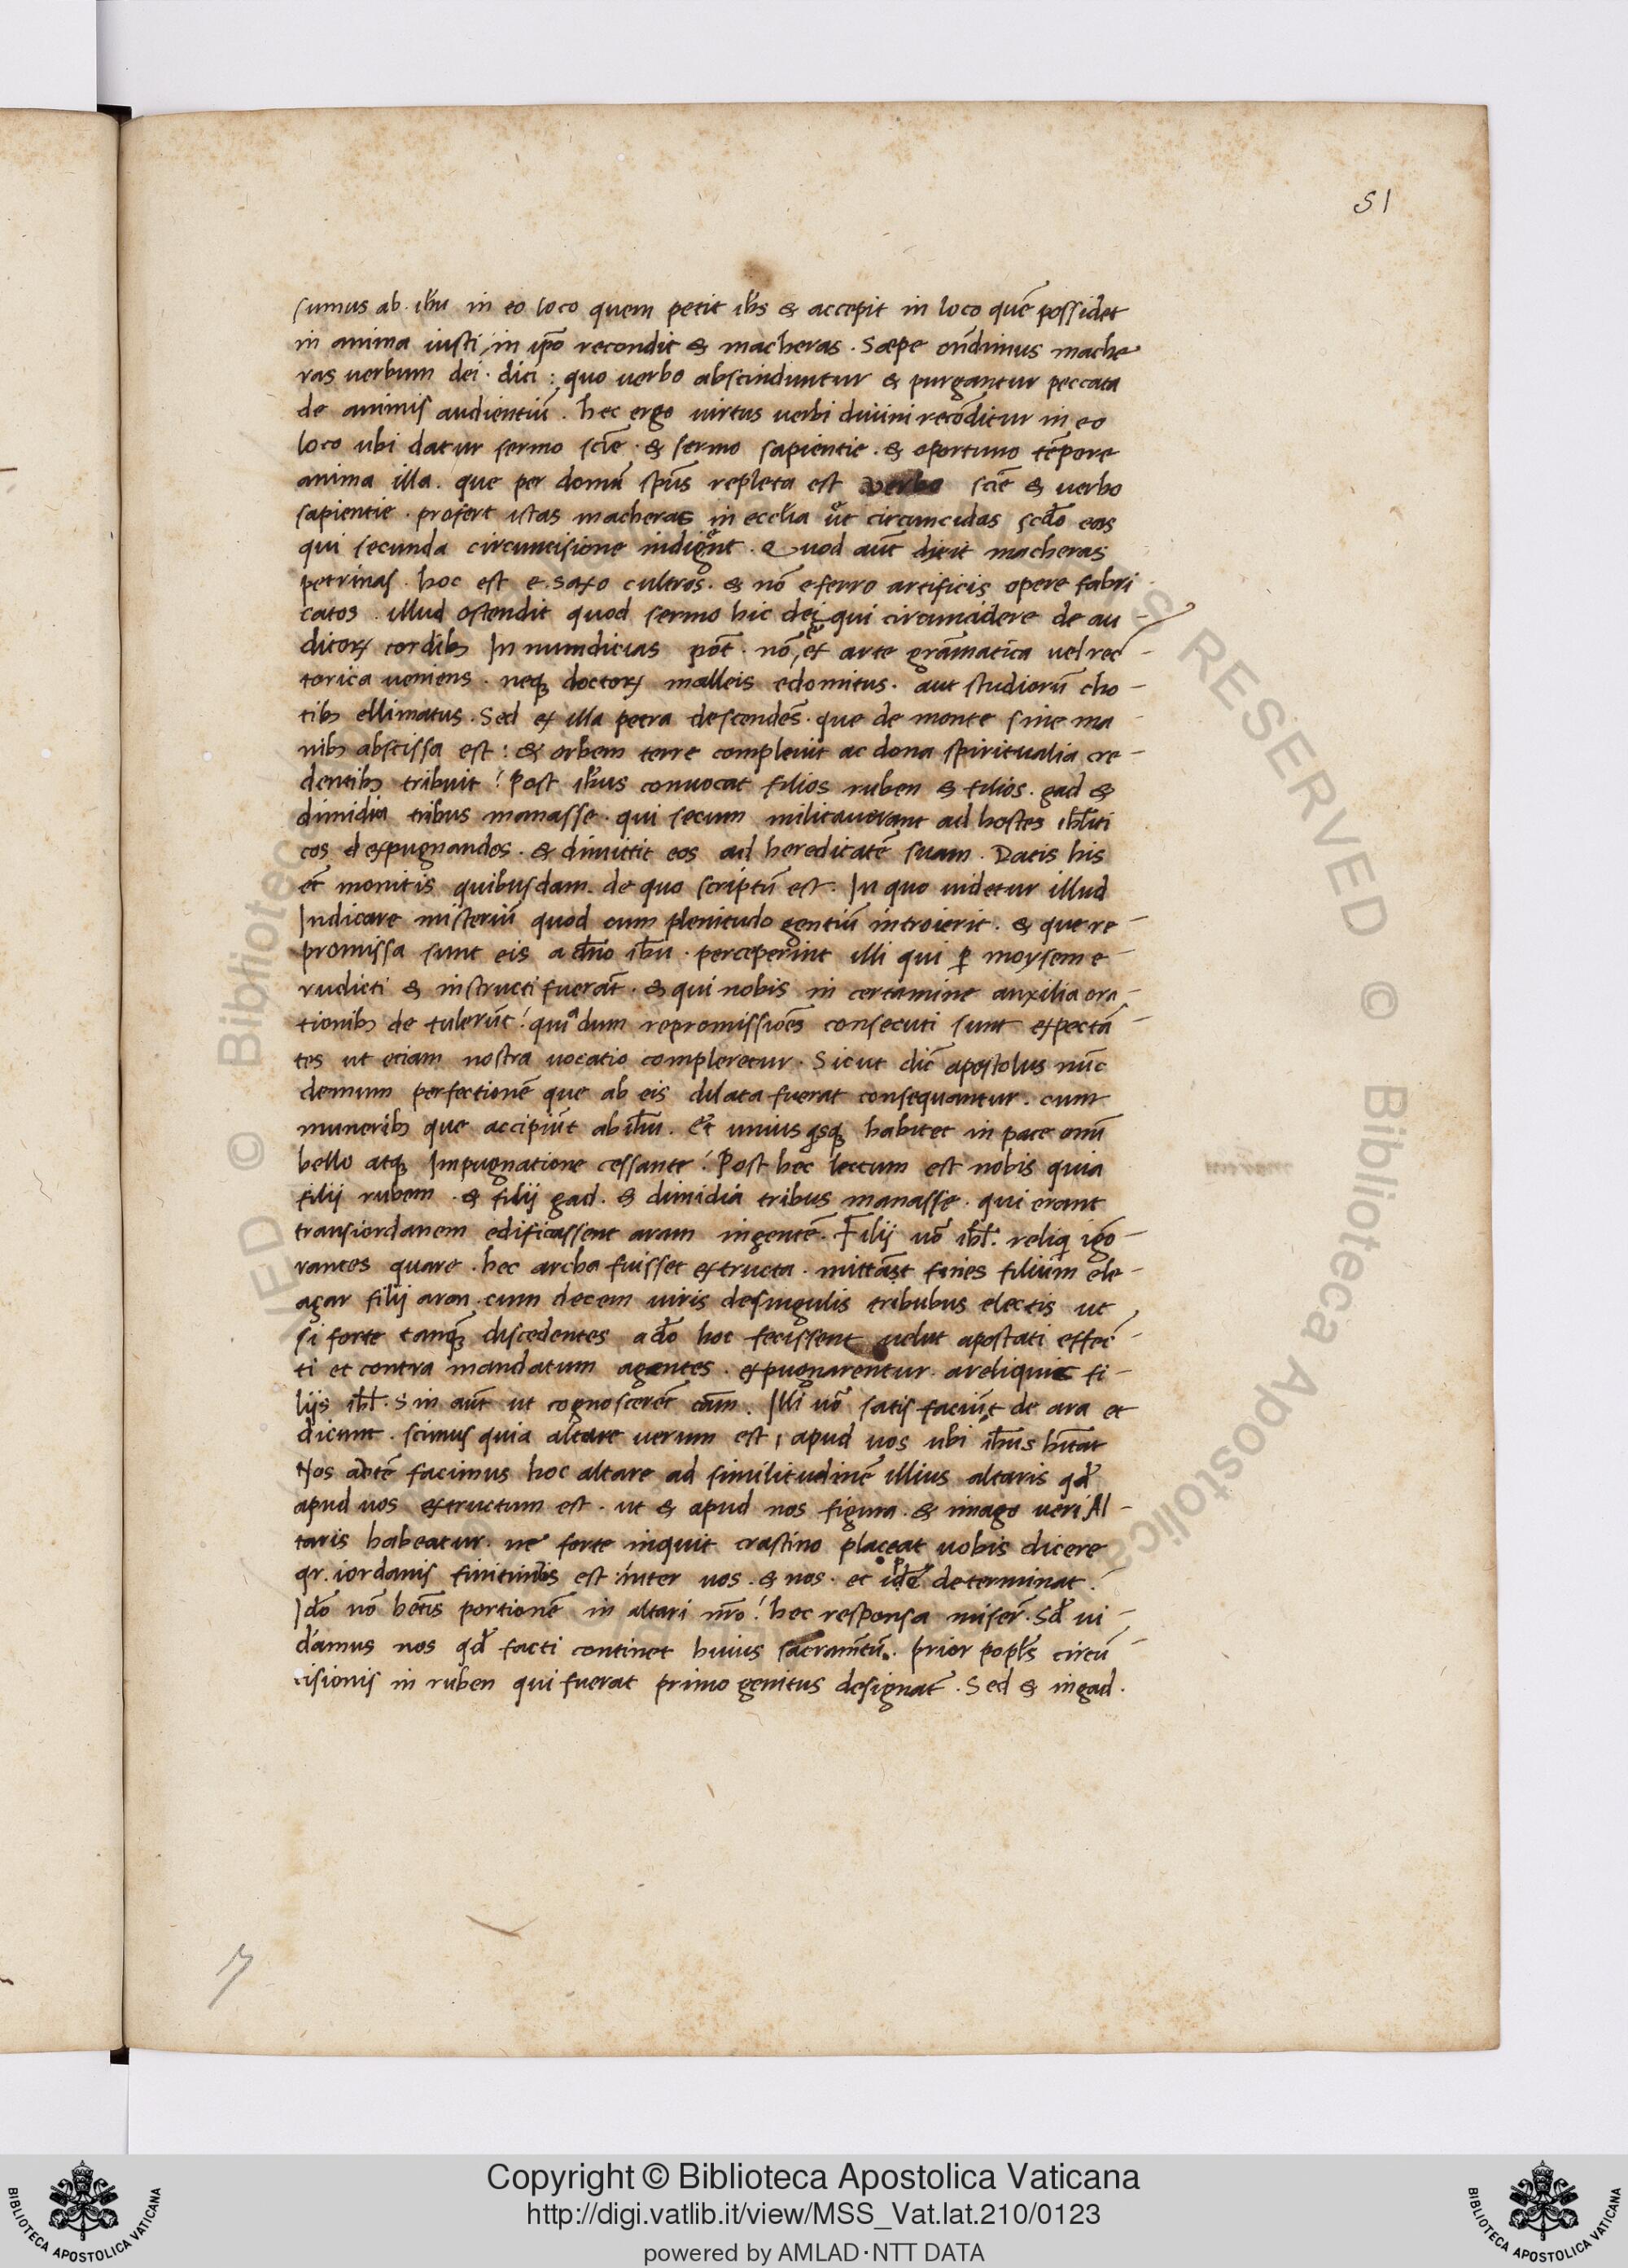 51
sumus ab ihu in eo loco quem petit ihs & accepit in loco quē possidet
in anima iusti, in ipō recondit & macheras. Sæpe oñdimus mache
ras uerbum dei. dici: quo uerbo abscinduntur & purgantur peccata
de animis audientiū. hec ergo uirtus uerbi diuini recōditur in eo
loco ubi datur sermo sciē. & sermo sapientie. & oportuno tēpore
anima illa. que per donū spūs repleta est verbo sciē & uerbo
sapientie. profert istas macheras in ecclīa ut circumcidas scdo eos
qui secunda circumcisione indigēt. Quod aūt dicit macheras
petrinas. hoc est e. saxo cultros. & nō eferro artificis opere fabri
catos. illud ostendit quod sermo hic dei qui circumcidere de au-
ditoꝝ cordibꝫ In mundicias pōt. nō ē ex arte grāmatica uel rec-
torica ueniens. neqꝫ doctoꝝ malleis edomitus. aut studiorū cho-
tibꝫ ellimatus. Sed ex illa petra descendēs. que de monte sine ma-
nibꝫ abscissa est: & orbem terre compleuit ac dona spiritualia cre-
dentibꝫ tribuit! Post ihus conuocat filios ruben & filios. gad &
dimidia tribus manasse. qui secum militauerant ad hostes ihliti
cos dexpugnandos. & dimittit eos ad hereditatē suam. Datis his
et monitis quibusdam. de quo scriptū est. In quo uidetur illud
Indicare misteriū quod cum plenitudo gentiū introierit. & que re-
promissa sunt eis a dño ihu. perceperint illi qui ꝑ moysem e-
rudicti & instructi fuerāt. & qui nobis in certamine auxilia ora-
tionibꝫ de tulerūt! quiadum repromissioēs consecuti sunt expectā-
tes ut etiam nostra uocatio compleretur. Sicut dic̄ apostolus nūc
demum perfectionē que ab eis dilata fuerat consequantur. cum
muneribꝫ que accipiūt ab ihu. Et unius qsqꝫ habitet in pace omī
bello atqꝫ Impugnatione cessante! Post hec lectum est nobis quia
filij rubem. & filij gad. & dimidia tribus manasse. qui erant
transiordanem edificassent aram ingentē. Filij uō ihl. reliq igō-
rantes quare. hec archa fuisset extructa. mittāst fines filium ele-
açar filij aron. cum decem uiris desingulis tribubus electis ut
si forte tanqꝫ discedentes a dō hoc fecissent uelut apostati effec-
ti et contra mandatum agentes. expugnarentur. areliquis fi-
lijs ihl. Sin aūt ut cognoscerēt cām. Illi uō satis faciūt de ara et
dicunt. scimus quia altare uerum est, apud uos ubi ihus hītat
Nos autē facimus hoc altare ad similitudinē illius altaris qd
apud uos extructum est. ut & apud nos figura. & imago ueri Al-
taris habeatur. ne forte inquit crastino placeat uobis dicere
qr. iordanis finitimus est inter uos. & nos. et idē determinat.
Idō nō hētis portionē in altari nrō! hec responsa misert. Sd ui-
damus nos qd facti continet huius sacramtū. prior poplus circū-
cisionis in ruben qui fuerat primo genitus designat. Sed & ingad.
7
Copyright © Biblioteca Apostolica Vaticana
http://digi.vatlib.it/view/MSS_Vat.lat.210/0123
powered by AMLAD·NTT DATA
BIBLIOTECA APOSTOLICA VATICANA
BIBLIOTECA APOSTOLICA VATICANA